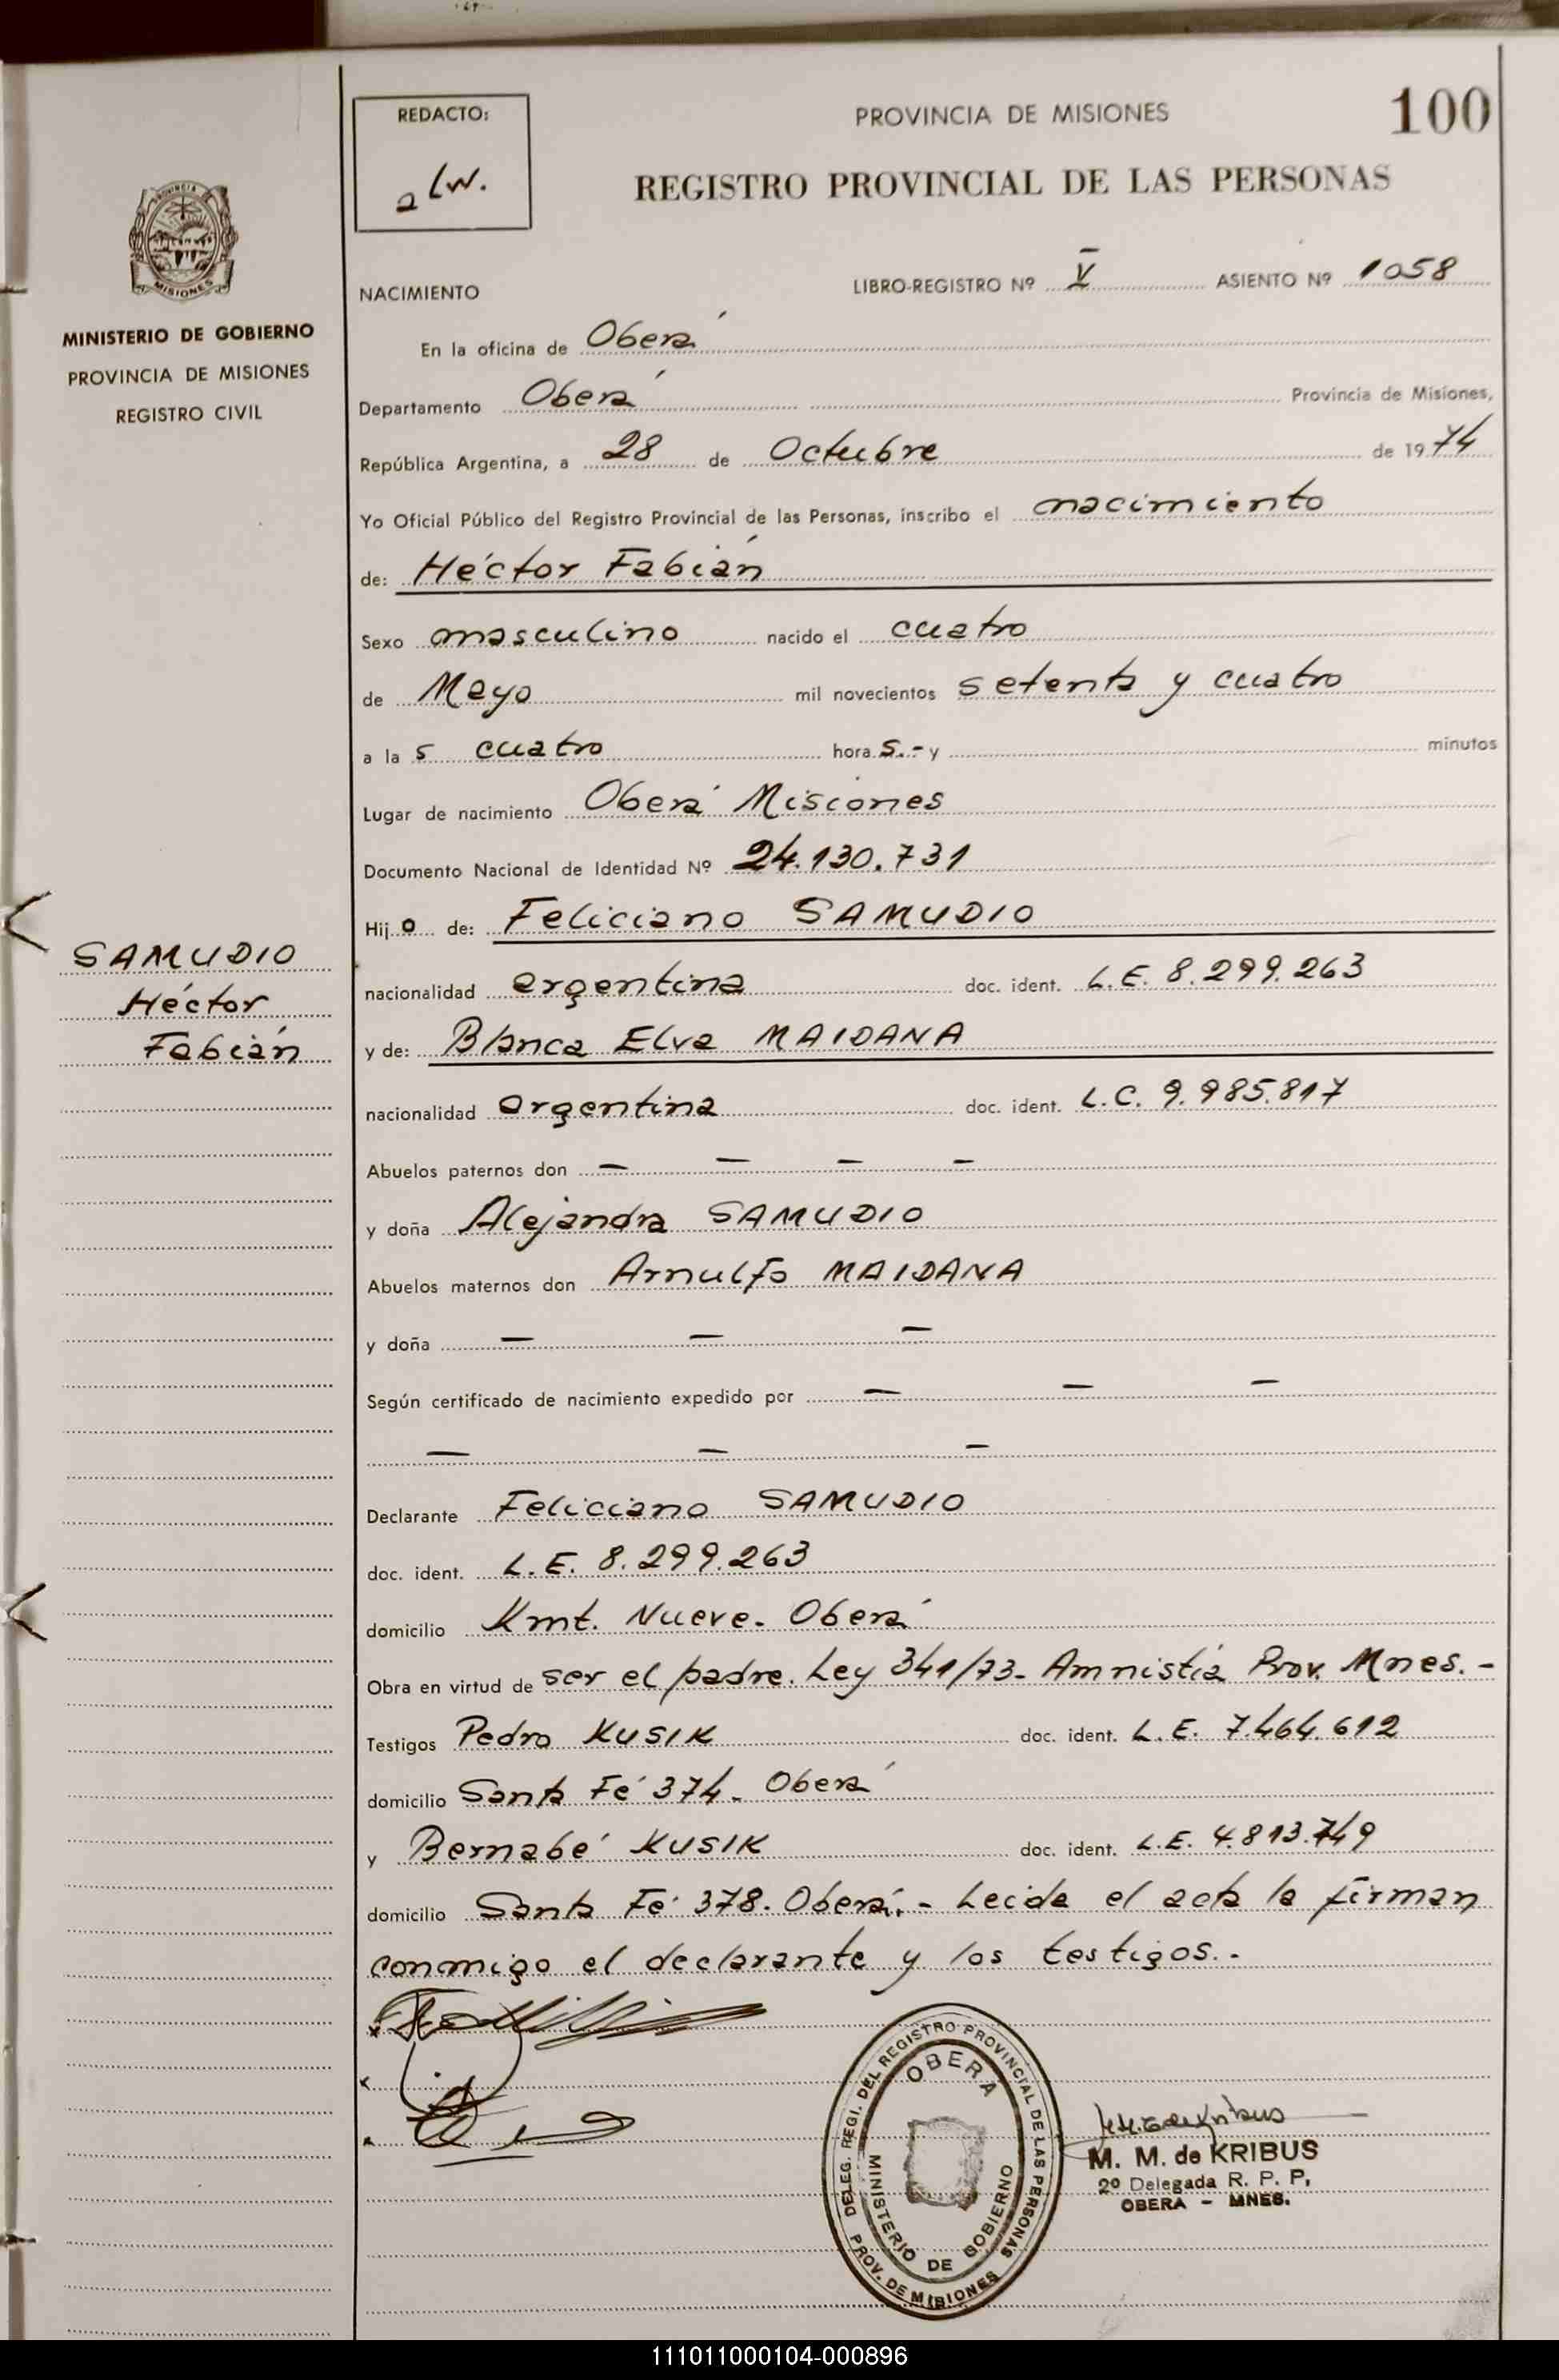 REDACTO:
PROVINCIA DE MISIONES
100
REGISTRO PROVINCIAL DE LAS PERSONAS
PROVINCIA
MISIONES
MINISTERIO DE GOBIERNO
PROVINCIA DE MISIONES
REGISTRO CIVIL
NACIMIENTO
LIBRO-REGISTRO Nº V ASIENTO Nº 1058
En la oficina de Oberá
Departamento Oberá Provincia de Misiones,
República Argentina, a 28 de Octubre de 1974
Yo Oficial Público del Registro Provincial de las Personas, inscribo el nacimiento
de: Héctor Fabián
Sexo masculino nacido el cuatro
de Mayo mil novecientos setenta y cuatro
a la s cuatro hora s.- y minutos
Lugar de nacimiento Oberá Misiones
Documento Nacional de Identidad Nº 24.130.731
Hij o de: Feliciano SAMUDIO
SAMUDIO
Héctor
Fabián
nacionalidad argentina doc. ident. L.E. 8.299.263
y de: Blanca Elva MAIDANA
nacionalidad argentina doc. ident. L.C. 9.985.817
Abuelos paternos don — — — —
y doña Alejandra SAMUDIO
Abuelos maternos don Arnulfo MAIDANA
y doña — — —
Según certificado de nacimiento expedido por — — —
— — —
Declarante Feliciano SAMUDIO
doc. ident. L.E. 8.299.263
domicilio Kmt. Nueve. Oberá
Obra en virtud de ser el padre. Ley 341/73- Amnistía Prov. Mnes.-
Testigos Pedro KUSIK doc. ident. L.E. 7.464.612
domicilio Santa Fé 374. Oberá
y Bernabé KUSIK doc. ident. L.E. 4.813.749
domicilio Santa Fé 378. Oberá.- Leida el acta la firman
conmigo el declarante y los testigos.-
DELEG. REGI. DEL REGISTRO PROVINCIAL DE LAS PERSONAS
OBERA
MINISTERIO DE GOBIERNO
PROV. DE MISIONES
M. M. de KRIBUS
2º Delegada R. P. P.
OBERA - MNES.
111011000104-000896